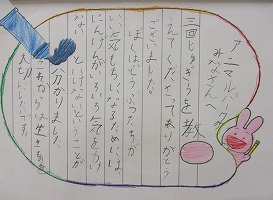 アニマルパークの
みなさんへ
三回じゅぎょうを教
えてくださってありがとう
ございました。
ぼくはどうぶつたちが
いい気もちになるためには、
にんげんがいろいろ気を付け
ないといけないということが
分かりました。
これからは生きものを
大切にしたいです。